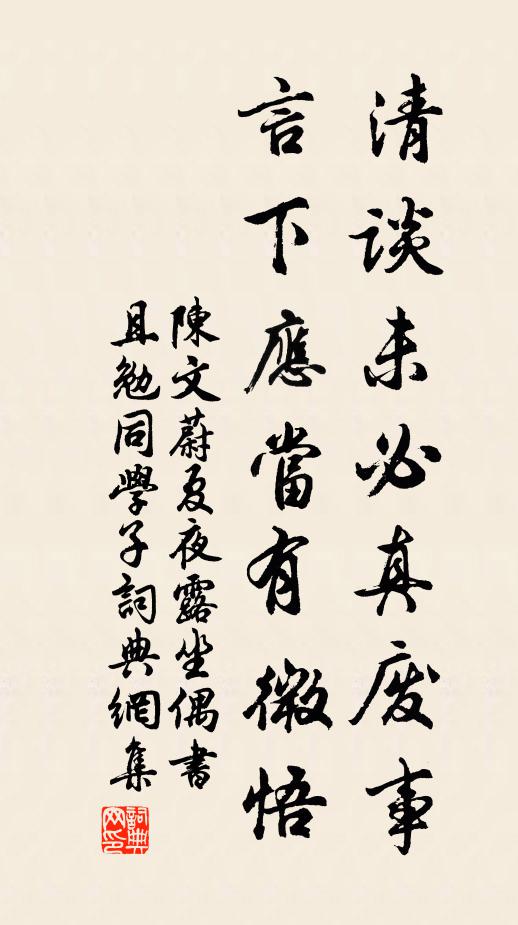 清談未必真废事
言下應當有微悟
陳文蔚夏夜露坐偶書
且勉同學子詞典網集
詞典网印